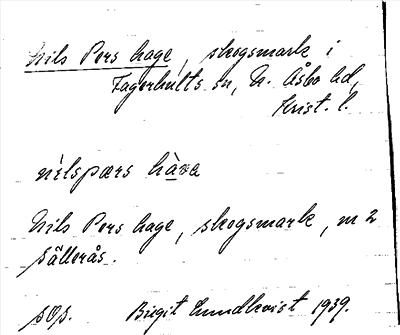 Nils Pers hage, skogsmark i
Fagerhults sn, N. Åsbo hd,
Krist. l.
nìlspærs hàva
Nils Pers hage, skogsmark, m 2
Sällerås.
sOp. Birgit Lundkvist 1939.